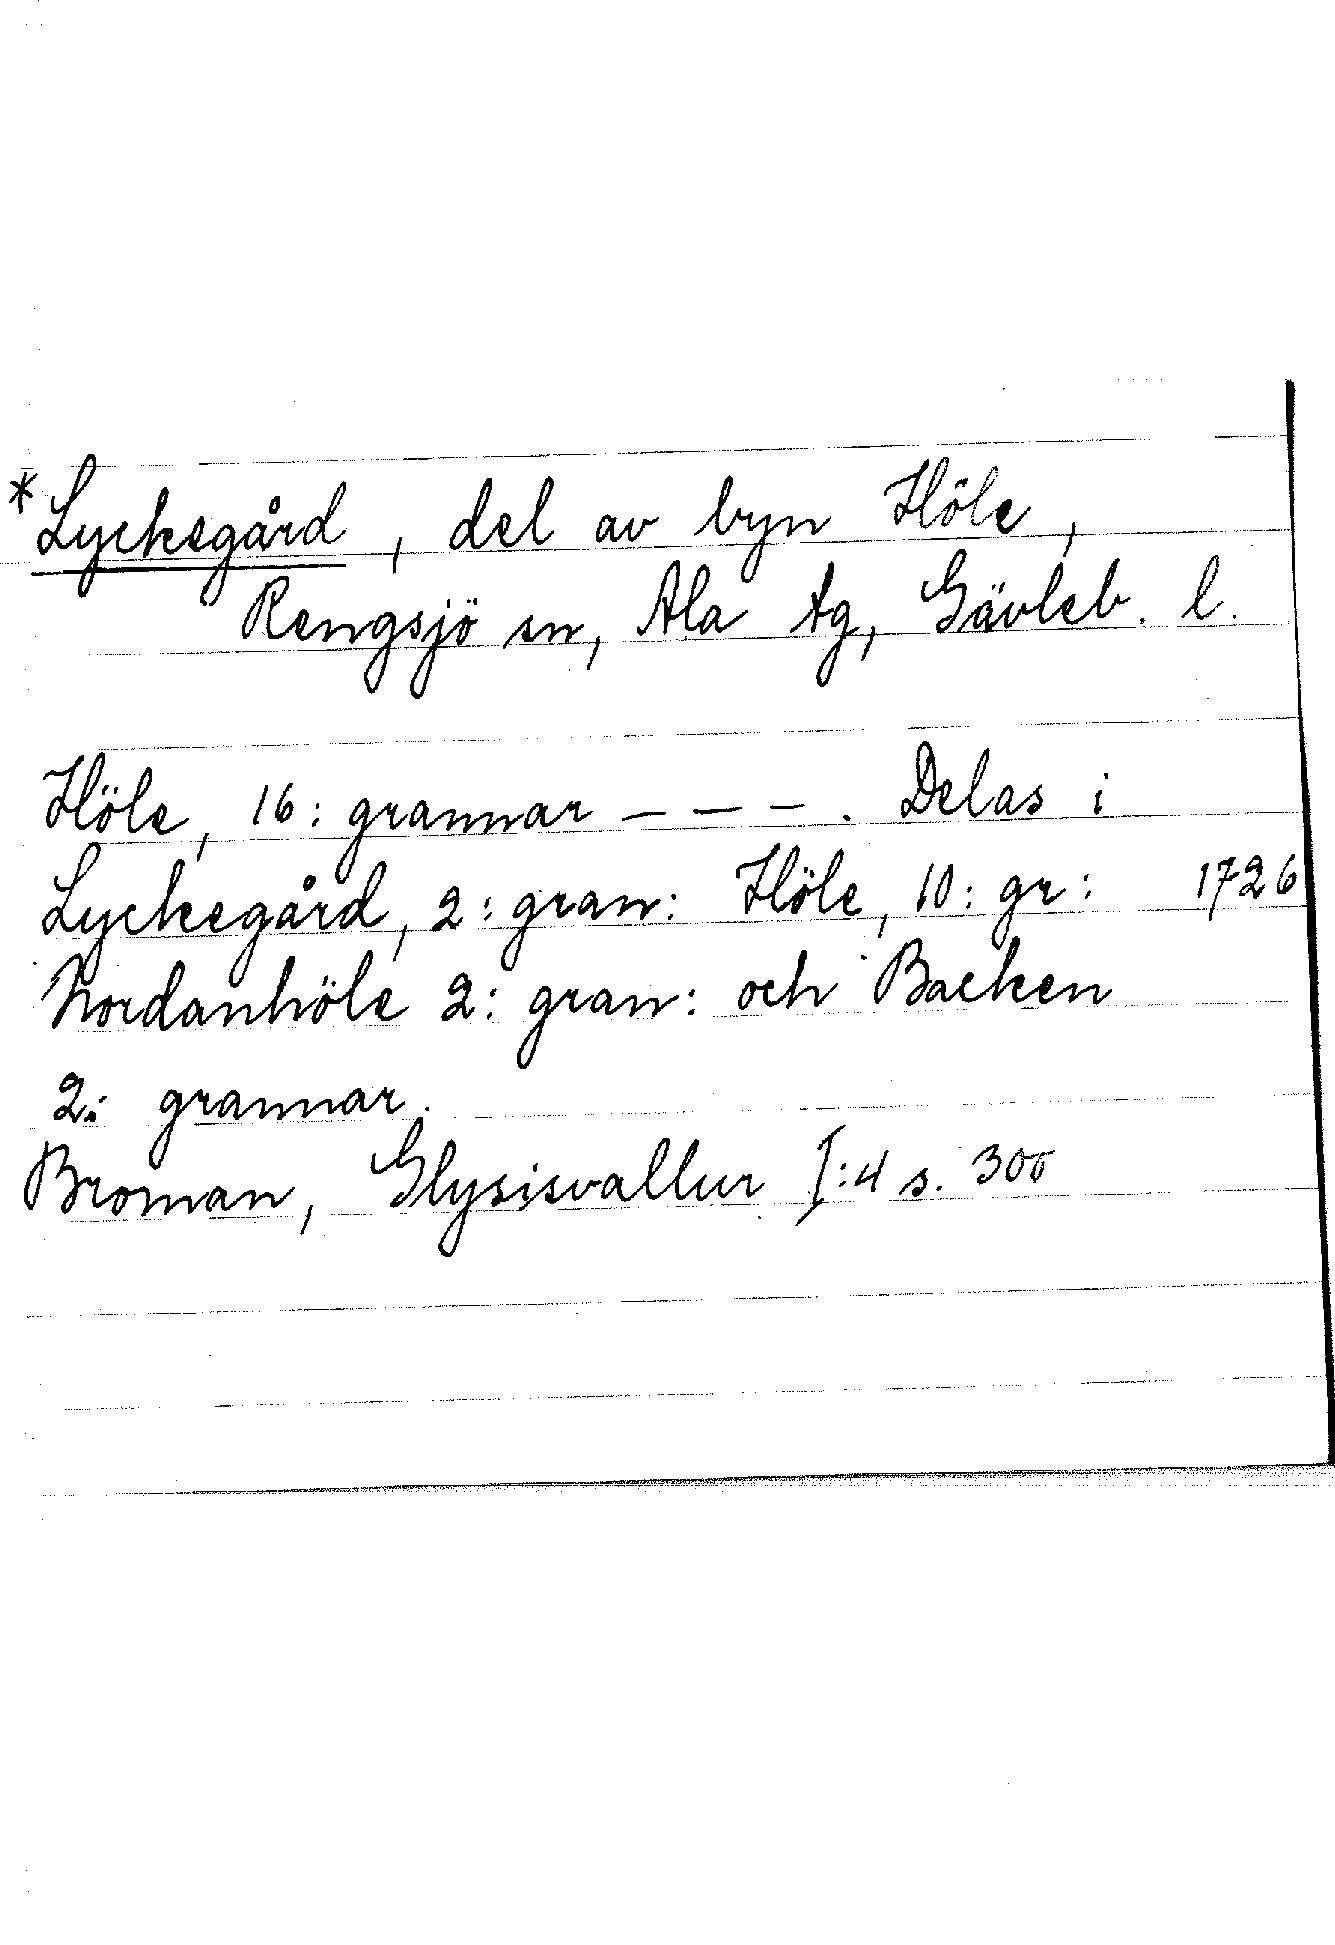 *Lyckegård, del av byn Höle,
Rengsjö sn, Ala tg, Gävleb. l.
Höle, 16: grannar – – –. Delas i
Lyckegård, 2: gran: Höle, 10: gr: 1726
Nordanhöle 2: gran: och Backen
2: grannar.
Broman, Glysisvallur I:4 s. 300